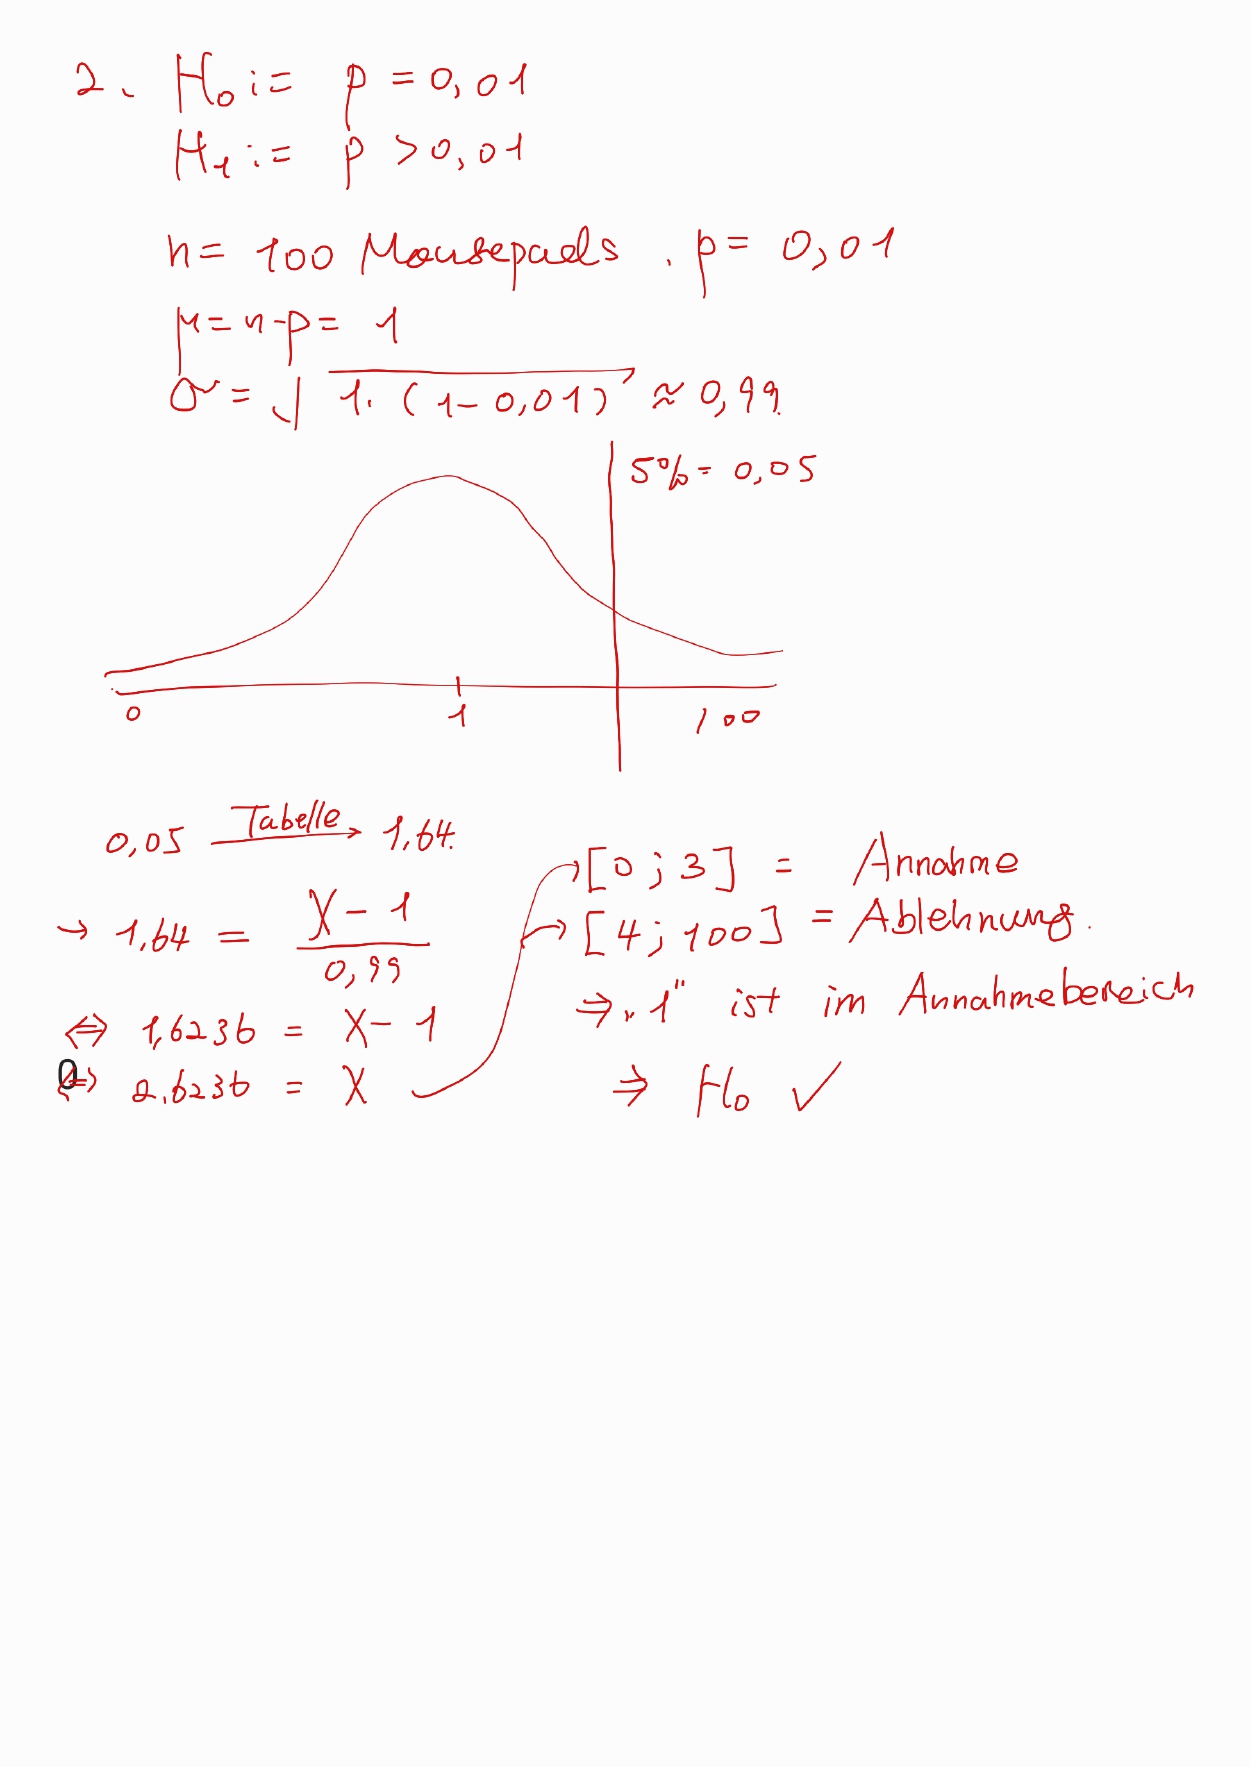 2. H₀ := p = 0,01
H₁ := p > 0,01
n = 100 Mousepads . p = 0,01
μ = n · p = 1
σ = √1. (1 - 0,01) ≈ 0,99.
5% = 0,05
0 1 100
0,05 Tabelle → 1,64.
→ 1,64 = (X - 1) / 0,99
⇔ 1,6236 = X - 1
0
⇔ 2,6236 = X
→ [0 ; 3] = Annahme
→ [4 ; 100] = Ablehnung.
⇒ „1" ist im Annahmebereich
⇒ H₀ ✓